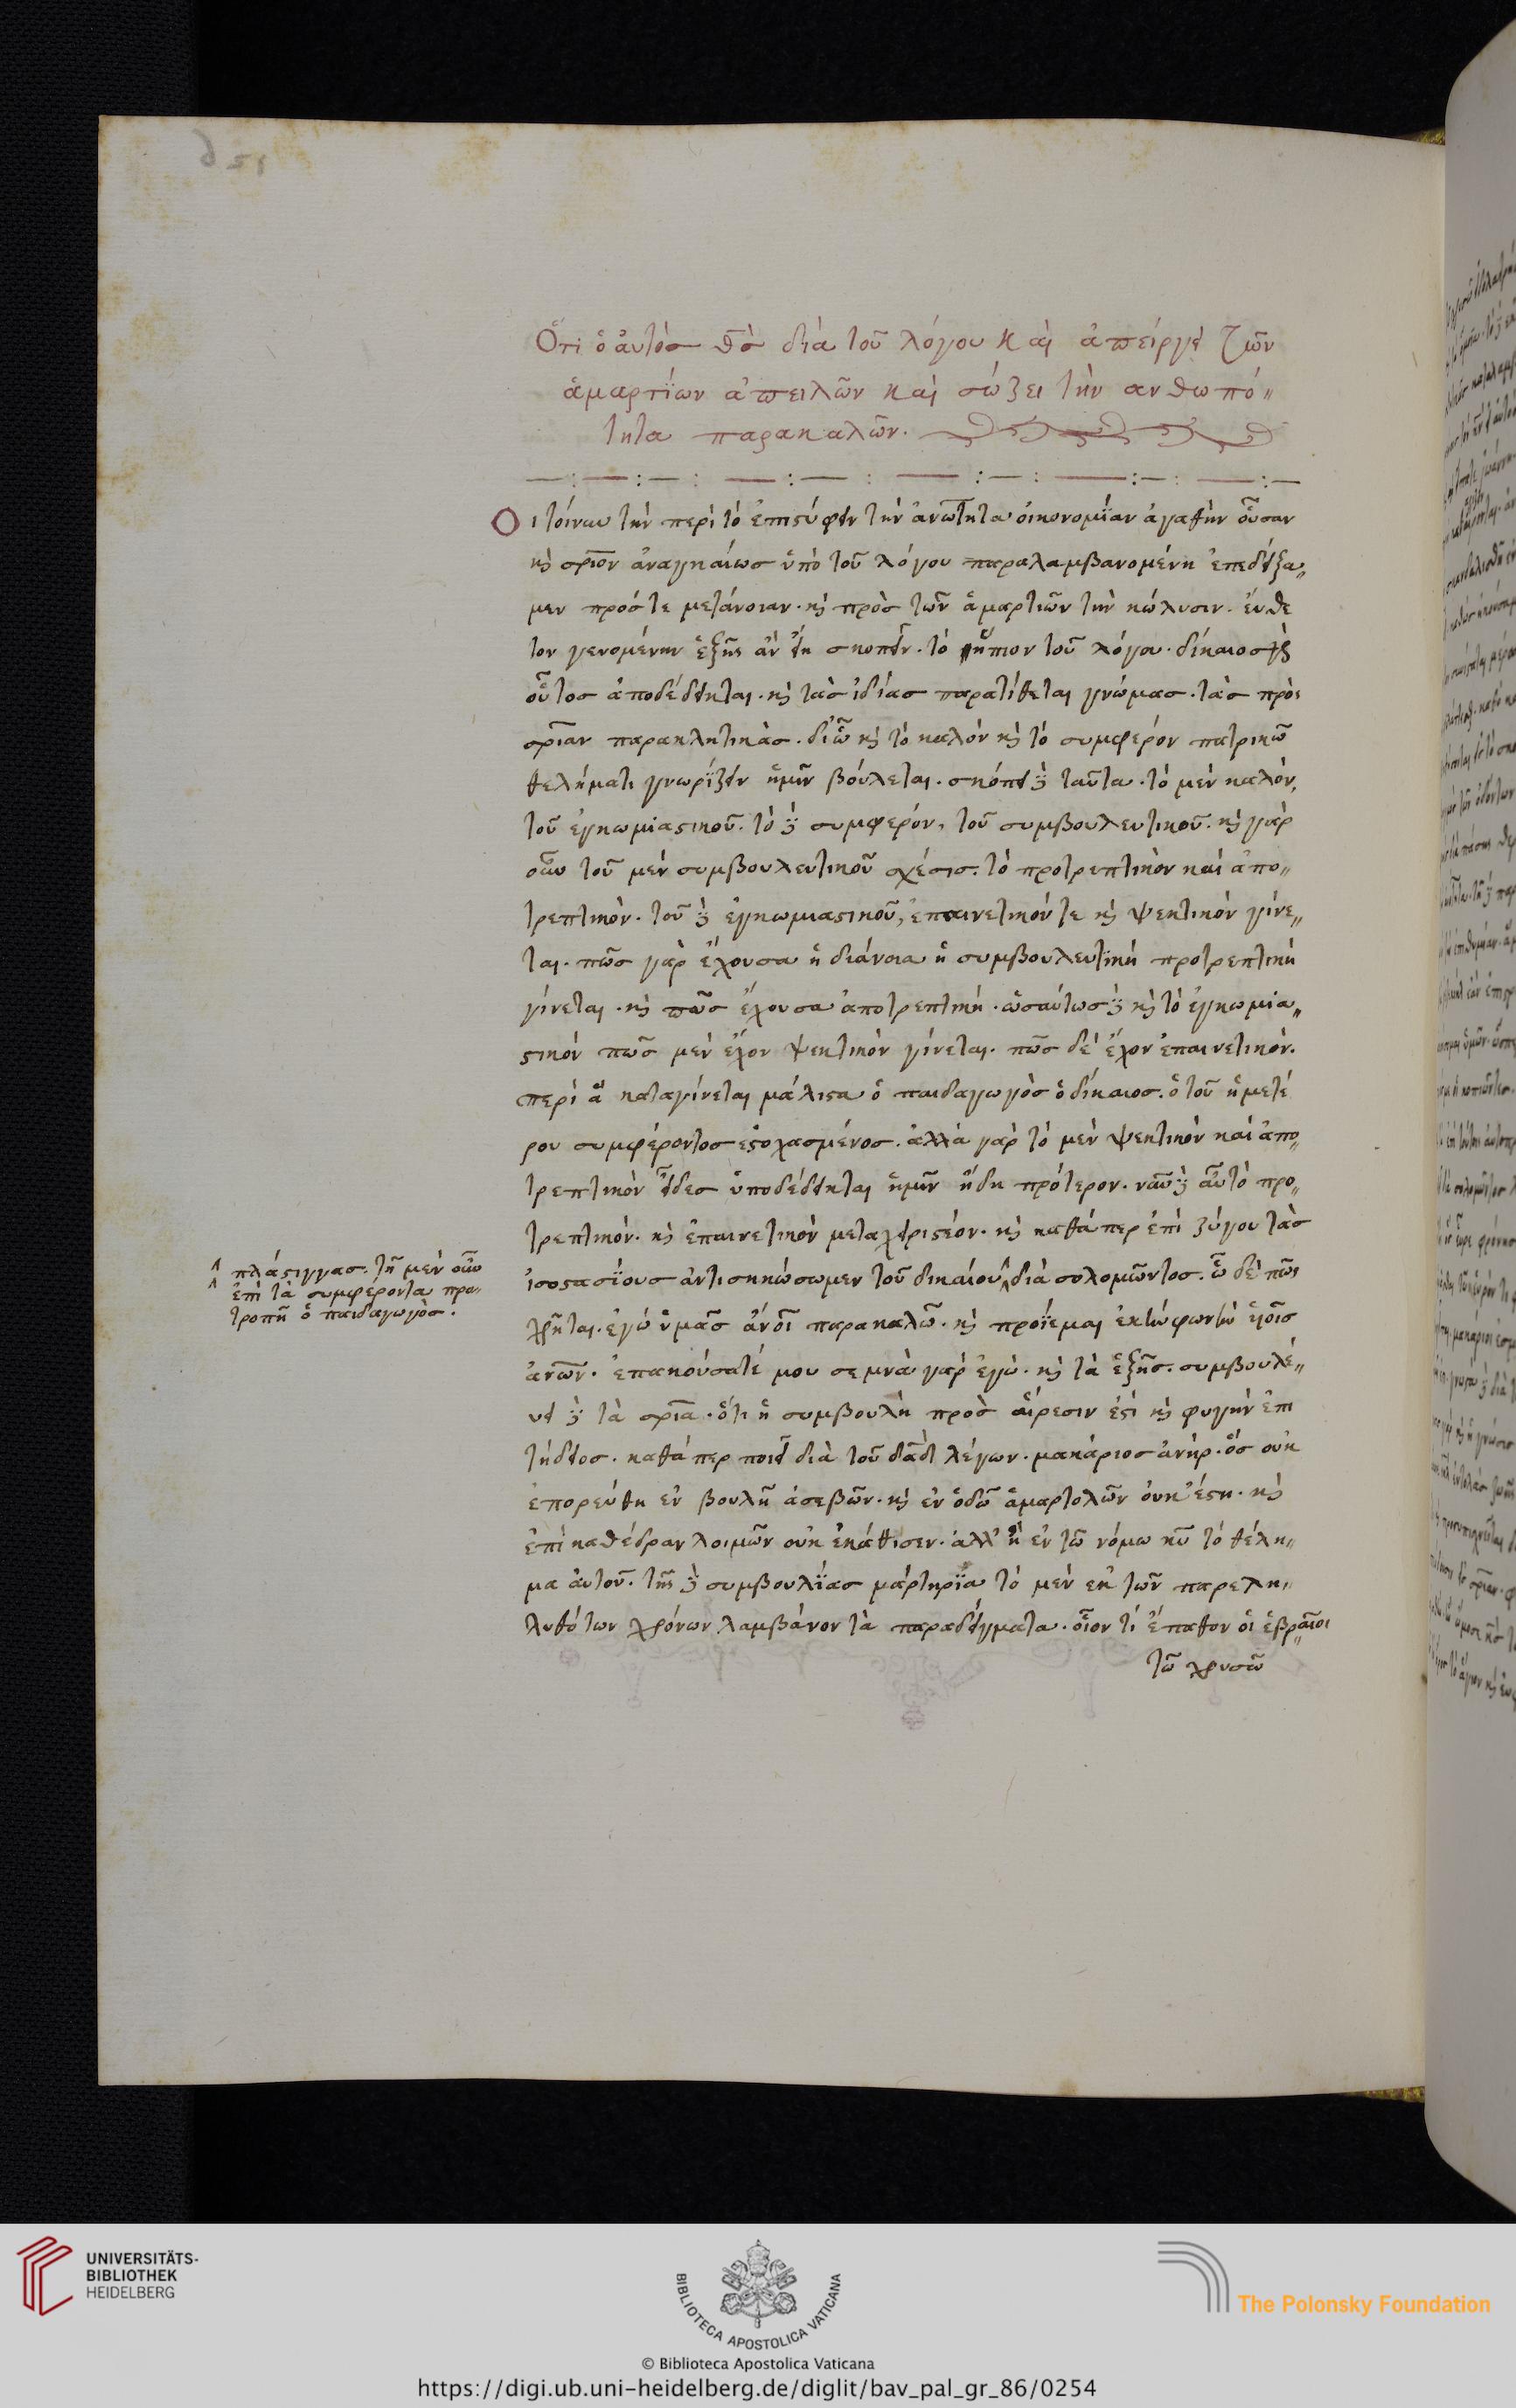 Ὅτι ὁ αὐτὸς θς διὰ τοῦ λόγου καὶ ἀπείργει τῶν
ἁμαρτϊων ἀπειλῶν καὶ σώζει τὴν ανθωπό〃
τητα παρακαλῶν.
Οι τοίνυν τὴν περὶ τὸ ἐπιστύφειν τὴν ἀνότητα οἰκονομΐαν ἀγαθὴν οὖσαν
κὶ σριον ἀναγκαίως ὑπὸ τοῦ λόγου παραλαμβανομένη ἐπεδείξα〃
μεν πρόσ τε μετάνοιαν. κὶ πρὸς τῶν ἁμαρτιῶν τὴν κώλυσιν. εὐθε
τον γενομένην ἑξῆς ἂν εἴη σκοπεῖν. τὸ ἤπιον τοῦ λόγου. δίκαιος
οὗτος ἀποδέδεικται. κὶ τὰς ἰδίας παρατίθεται γνώμας. τὰς πρὸς
σριαν παρακλητικὰς. δι ὧν κὶ τὸ καλὸν κὶ τὸ συμφερόν πατρικῶ
θελήματι γνωρΐζειν ἡμῖν βούλεται. σκόπει δὲ ταῦτα. τὸ μὲν καλόν,
τοῦ ἐγκωμιαστικοῦ. τὸ δὲ συμφερόν, τοῦ συμβουλευτικοῦ. κὶ γὰρ
οὖν τοῦ μὲν συμβουλευτικοῦ σχέσις. τὸ προτρεπτικὸν καὶ ἀπο〃
τρεπτικὸν. τοῦ δὲ ἐγκωμιαστικοῦ, ἐπαινετικόν τε κὶ ψεκτικὸν γίνε〃
ται. πῶς γὰρ ἔχουσα ἡ διάνοια ἡ συμβουλευτϊκὴ προτρεπτικὴ
γίνεται. κὶ πῶς ἔχουσα ἀποτρεπτική. ὡσαύτως δὲ κὶ τὸ ἐγκωμια〃
στικὸν πῶς μὲν ἔχον ψεκτικὸν γίνεται. πῶς δὲ ἔχον ἐπαινετικόν.
περὶ ἃ καταγίνεται μάλιστα ὁ παιδαγωγὸς ὁ δίκαιος. ὁ τοῦ ἡμετέ
ρου συμφέροντος εστοχασμένος. ἀλλὰ γὰρ τὸ μὲν ψεκτικὸν καὶ ἀπο〃
τρεπτικὸν εἶδες ὑποδέδεικται ἡμῖν ἤδη πρότερον. νῦν δὲ αὖ τὸ προ〃
τρεπτικόν. κὶ ἐπαινετικὸν μεταχειριστέον. κὶ καθάπερ ἐπὶ ζύγου τὰς
ἰσοστασΐους ἀντισηκώσωμεν τοῦ δικαίου διὰ σολομῶντος. ὧ δέ πῶς
^ πλάστιγγας. τῆ μὲν οὖν
^ ἐπὶ τὰ συμφέροντα προ〃
τροπῆ ὁ παιδαγωγὸς.
χρῆται. ἐγὼ ὑμᾶς ἄνοι παρακαλῶ. κὶ προΐεμαι ὑοῖς
ἀνων. ἐπακούσατέ μου σεμνὰ γὰρ ἐγὼ. κὶ τὰ ἑξῆς. συμβουλέ〃
υει δὲ τὰ σρια. ὅτι ἡ συμβουλὴ πρὸς αἵρεσιν ἐστὶ κὶ φυγὴν ἐπι
τήδειος. καθάπερ ποιεῖ διὰ τοῦ δαδ λέγων. μακάριος ἀνὴρ. ὃς οὐκ
ἐπορεύθη ἐν βουλῆ ἀσεβῶν. κὶ ἐν ὁδῶ ἁμαρτολῶν ουκ ἔστη. κὶ
ἐπὶ καθέδραν λοιμῶν οὐκ ἐκάθισεν. ἀλλ' ἢ ἐν τῶ νόμω κυ τὸ θέλη〃
μα ἀυτοῦ. τῆς δὲ συμβουλΐας μάρτηρΐα τὸ μὲν ἐκ τῶν παρελη〃
λυθότων χρόνων λαμβάνον τὰ παραδείγματα. οἷον τί ἔπαθον οἱ ἑβραῖοι
τῶ χρυσῶ
UNIVERSITÄTS-
BIBLIOTHEK
HEIDELBERG
BIBLIOTECA APOSTOLICA VATICANA
The Polonsky Foundation
© Biblioteca Apostolica Vaticana
https://digi.ub.uni-heidelberg.de/diglit/bav_pal_gr_86/0254